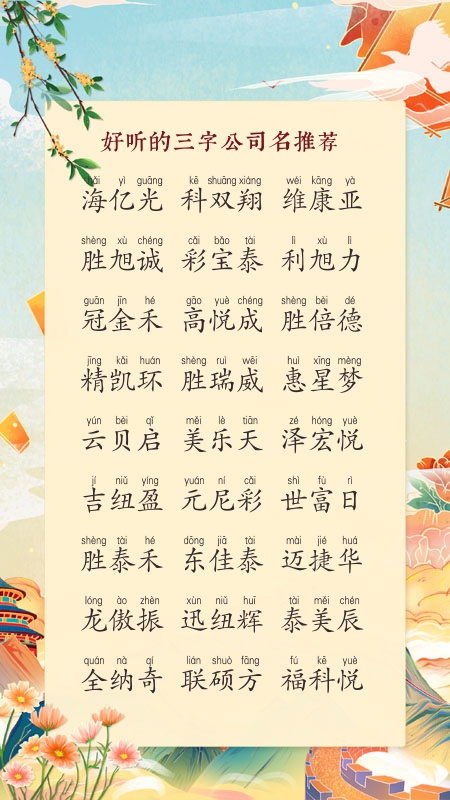 好听的三字公司名推荐
hǎi yì guāng kē shuāng xiáng wéi kāng yà
海亿光 科双翔 维康亚
shèng xù chéng cǎi bǎo tài lì xù lì
胜旭诚 彩宝泰 利旭力
guān jīn hé gāo yuè chéng shèng bèi dé
冠金禾 高悦成 胜倍德
jīng kǎi huán shèng ruì wēi huì xīng mèng
精凯环 胜瑞威 惠星梦
yún bèi qǐ měi lè tiān zé hóng yuè
云贝启 美乐天 泽宏悦
jí niǔ yíng yuán ní cǎi shì fù rì
吉纽盈 元尼彩 世富日
shèng tài hé dōng jiā tài mài jié huá
胜泰禾 东佳泰 迈捷华
lóng ào zhèn xùn niǔ huī tài měi chén
龙傲振 迅纽辉 泰美辰
quán nà qí lián shuò fāng fú kē yuè
全纳奇 联硕方 福科悦